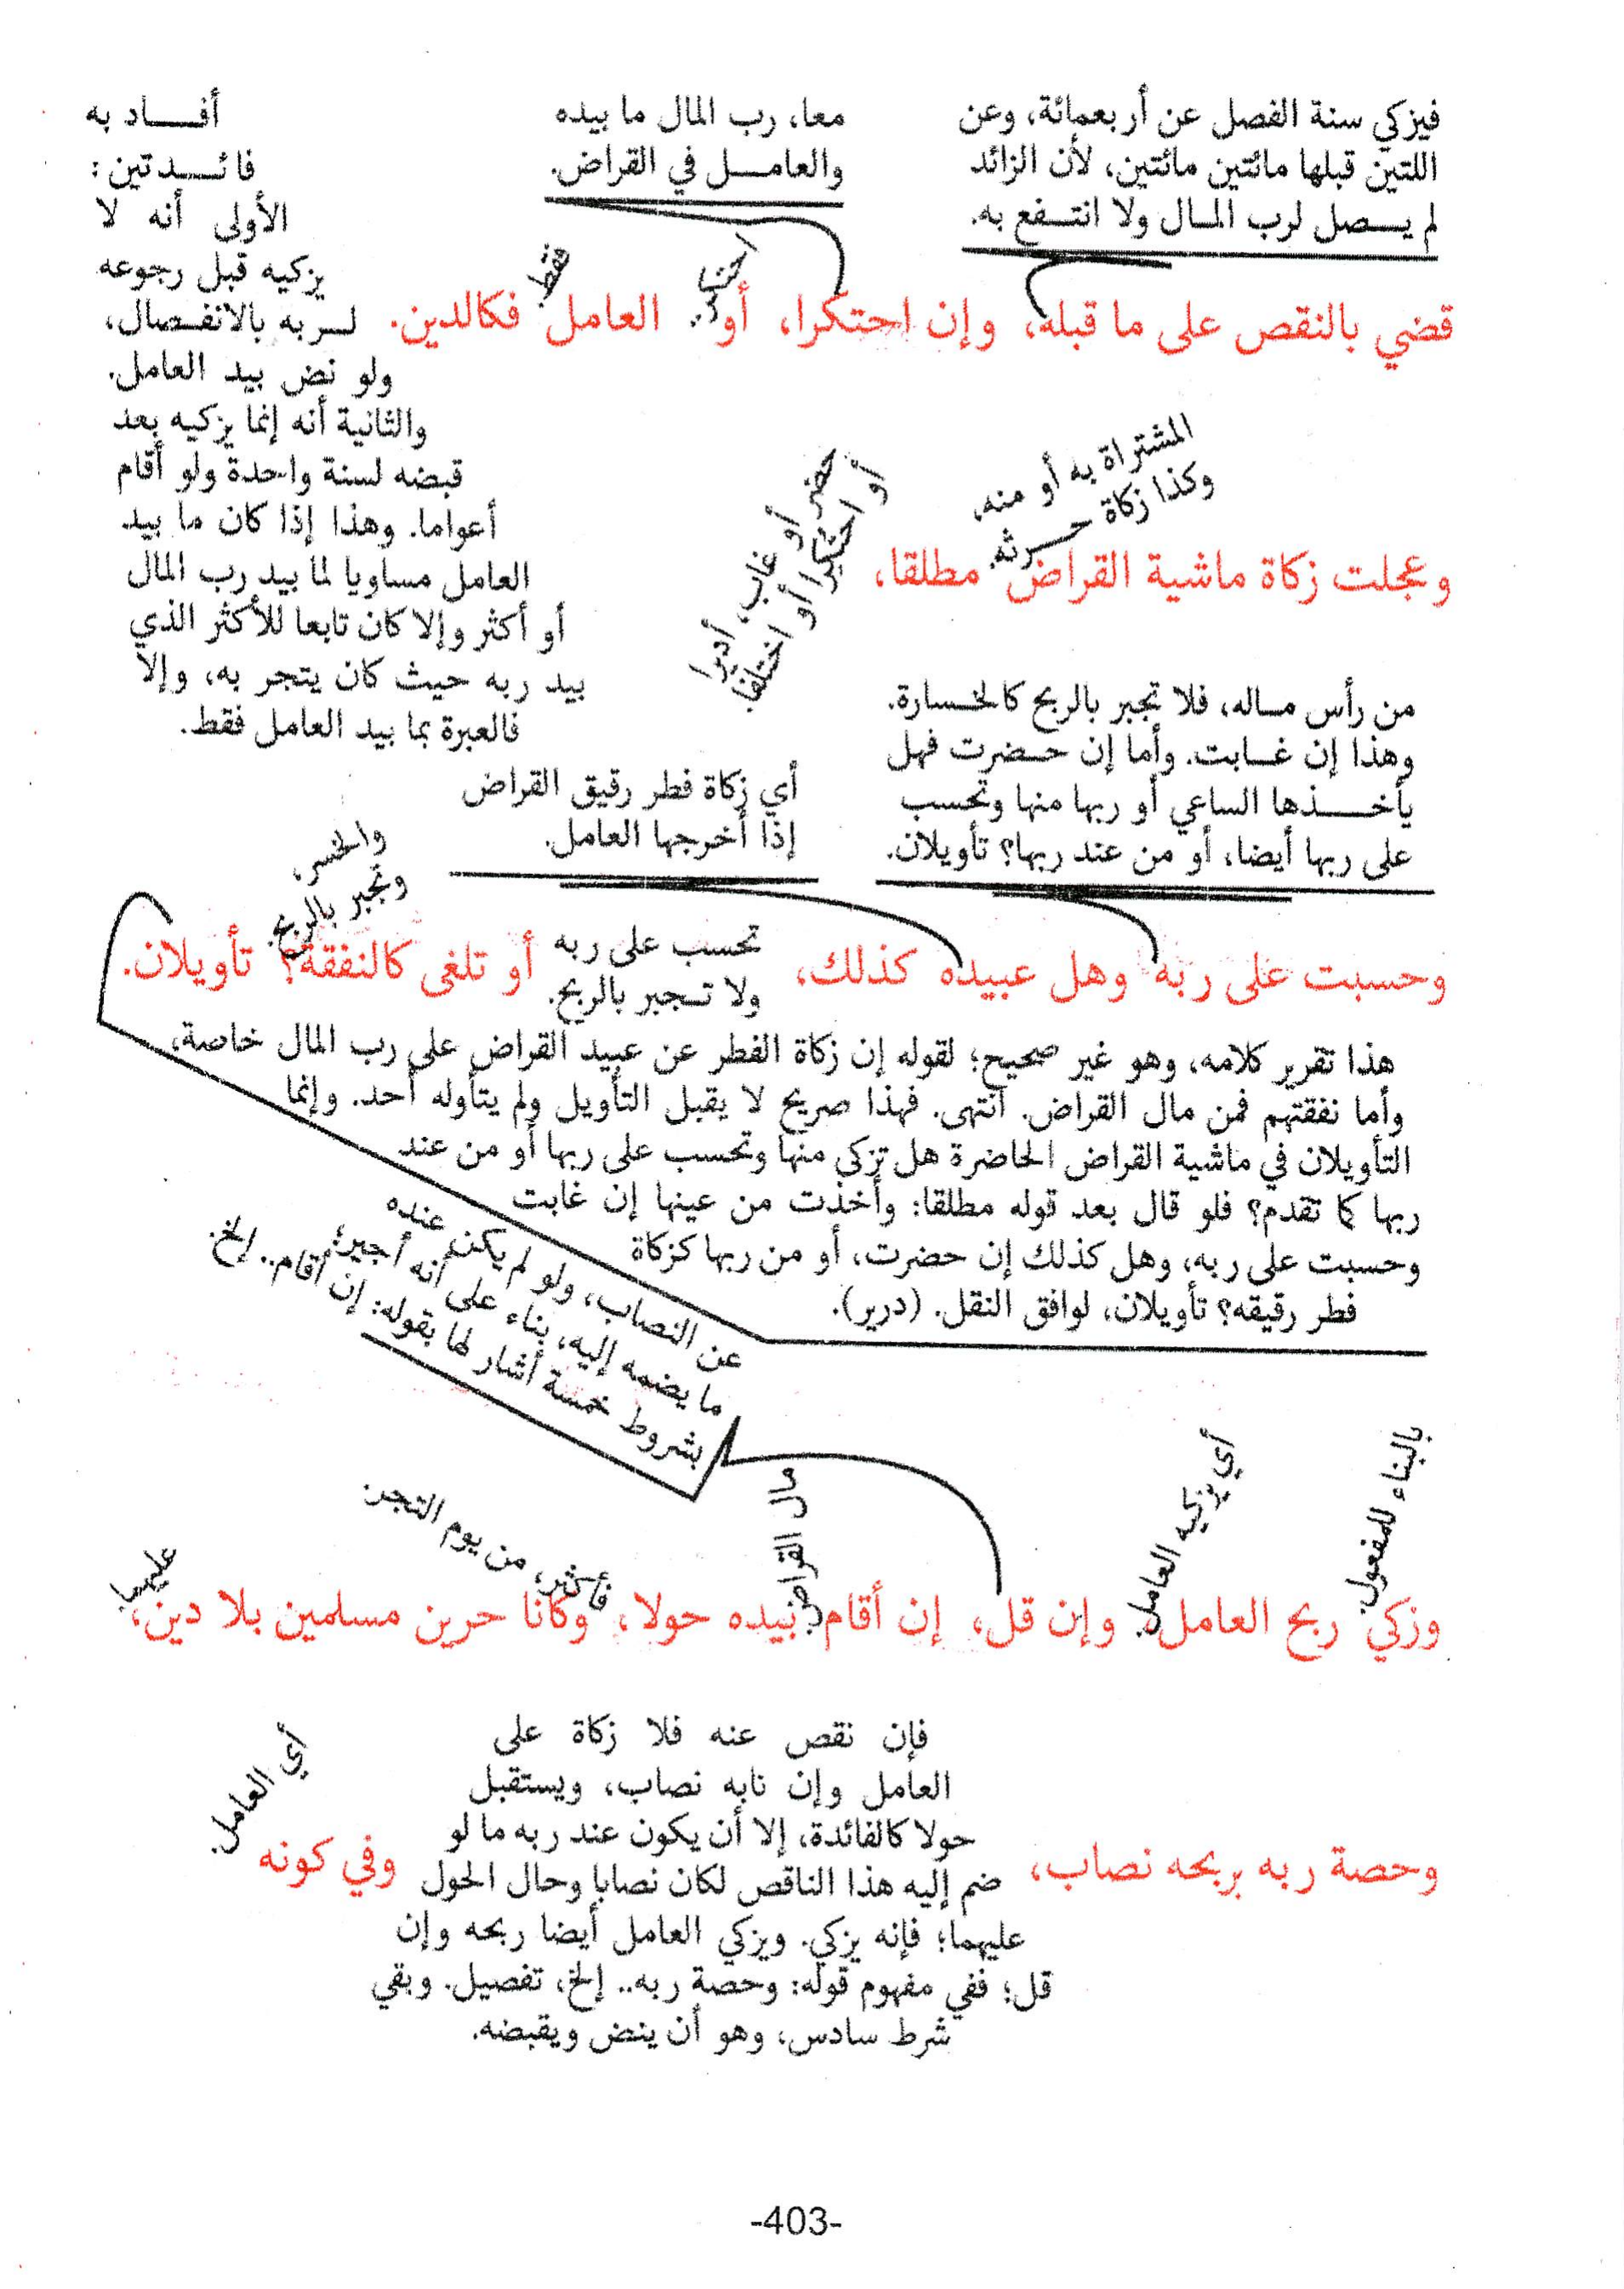 فيزكي سنة الفصل عن أربعمائة، وعن
اللتين قبلها مائتين مائتين، لأن الزائد
لم يصل لرب المال ولا انتفع به.
معا، رب المال ما بيده
والعامل في القراض.
احتكر.
فقط.
أفاد به
فائدتين:
الأولى أنه لا
يزكيه قبل رجوعه
لربه بالانفصال،
ولو نض بيد العامل.
والثانية أنه إنما يزكيه بعد
قبضه لسنة واحدة ولو أقام
أعواما. وهذا إذا كان ما بيد
العامل مساويا لما بيد رب المال
أو أكثر وإلا كان تابعا للأكثر الذي
بيد ربه حيث كان يتجر به، وإلا
فالعبرة بما بيد العامل فقط.
قضي بالنقص على ما قبله، وإن احتكرا، أو العامل فكالدين.
المشتراة به أو منه،
وكذا زكاة حرثه.
حضر أو غاب، أديرا
أو احتكرا أو اختلفا
وعجلت زكاة ماشية القراض مطلقا،
من رأس ماله، فلا تجبر بالربح كالخسارة.
وهذا إن غابت. وأما إن حضرت فهل
يأخذها الساعي أو ربها منها وتحسب
على ربها أيضا، أو من عند ربها؟ تأويلان.
أي زكاة فطر رقيق القراض
إذا أخرجها العامل.
والخسر،
وتجبر بالربح.
وحسبت على ربه وهل عبيده كذلك،
تحسب على ربه
ولا تجبر بالربح.
أو تلغى كالنفقة؟ تأويلان.
هذا تقرير كلامه، وهو غير صحيح؛ لقوله إن زكاة الفطر عن عبيد القراض على رب المال خاصة،
وأما نفقتهم فمن مال القراض. انتهى. فهذا صريح لا يقبل التأويل ولم يتأوله أحد. وإنما
التأويلان في ماشية القراض الحاضرة هل تزكى منها وتحسب على ربها أو من عند
ربها كما تقدم؟ فلو قال بعد قوله مطلقا: وأخذت من عينها إن غابت
وحسبت على ربه، وهل كذلك إن حضرت، أو من ربها كزكاة
فطر رقيقه؟ تأويلان، لوافق النقل. (دردير).
عن النصاب، ولو لم يكن عنده
ما يضمه إليه، بناء على أنه أجير؛
بشروط خمسة أشار لها بقوله: إن أقام.. إلخ.
بالبناء للمفعول.
أي يزكيه العامل.
مال القراض.
فأكثر، من يوم التجر.
عليهما.
وزكي ربح العامل وإن قل، إن أقام بيده حولا، وكانا حرين مسلمين بلا دين،
وحصة ربه بربحه نصاب،
فإن نقص عنه فلا زكاة على
العامل وإن نابه نصاب، ويستقبل
حولا كالفائدة، إلا أن يكون عند ربه ما لو
ضم إليه هذا الناقص لكان نصابا وحال الحول
عليهما؛ فإنه يزكي. ويزكي العامل أيضا ربحه وإن
قل؛ ففي مفهوم قوله: وحصة ربه.. إلخ، تفصيل. وبقي
شرط سادس، وهو أن ينض ويقبضه.
وفي كونه
أي العامل.
-403-